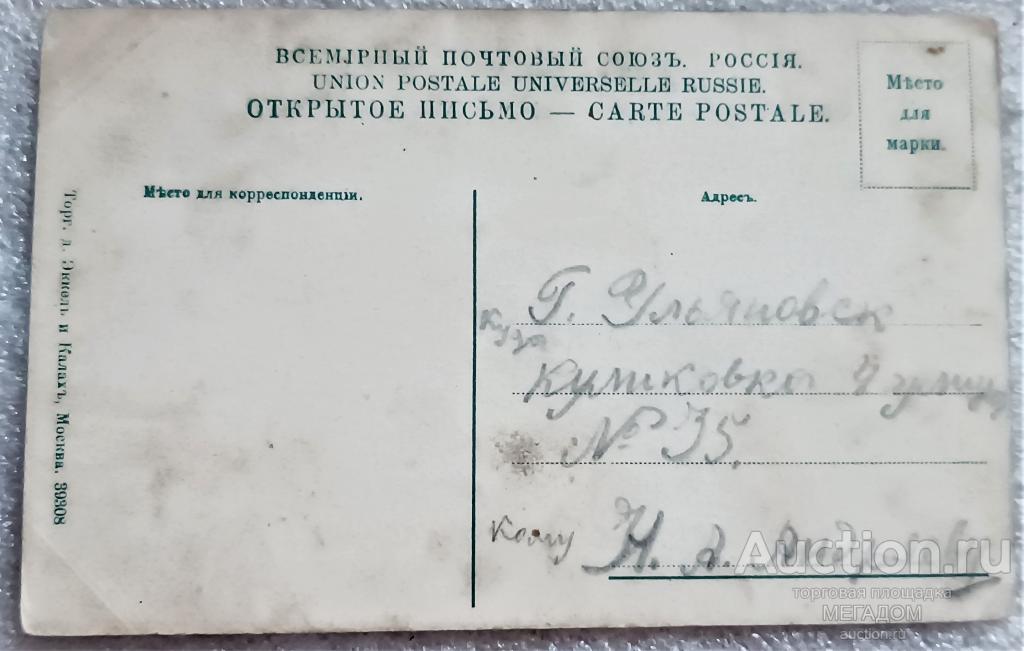 ВСЕМІРНЫЙ ПОЧТОВЫЙ СОЮЗЪ. РОССІЯ.
UNION POSTALE UNIVERSELLE RUSSIE.
ОТКРЫТОЕ ПИСЬМО — CARTE POSTALE.
Мѣсто
для
марки.
Мѣсто для корреспонденціи.
Адресъ.
Торг. д. Эккель и Калахъ, Москва. 39308
Куда
Г. Ульяновск
Куликовка 4 улица
№ 35.
Кому
Н. А.
Auction.ru
торговая площадка
МЕГАДОМ
auction.ru